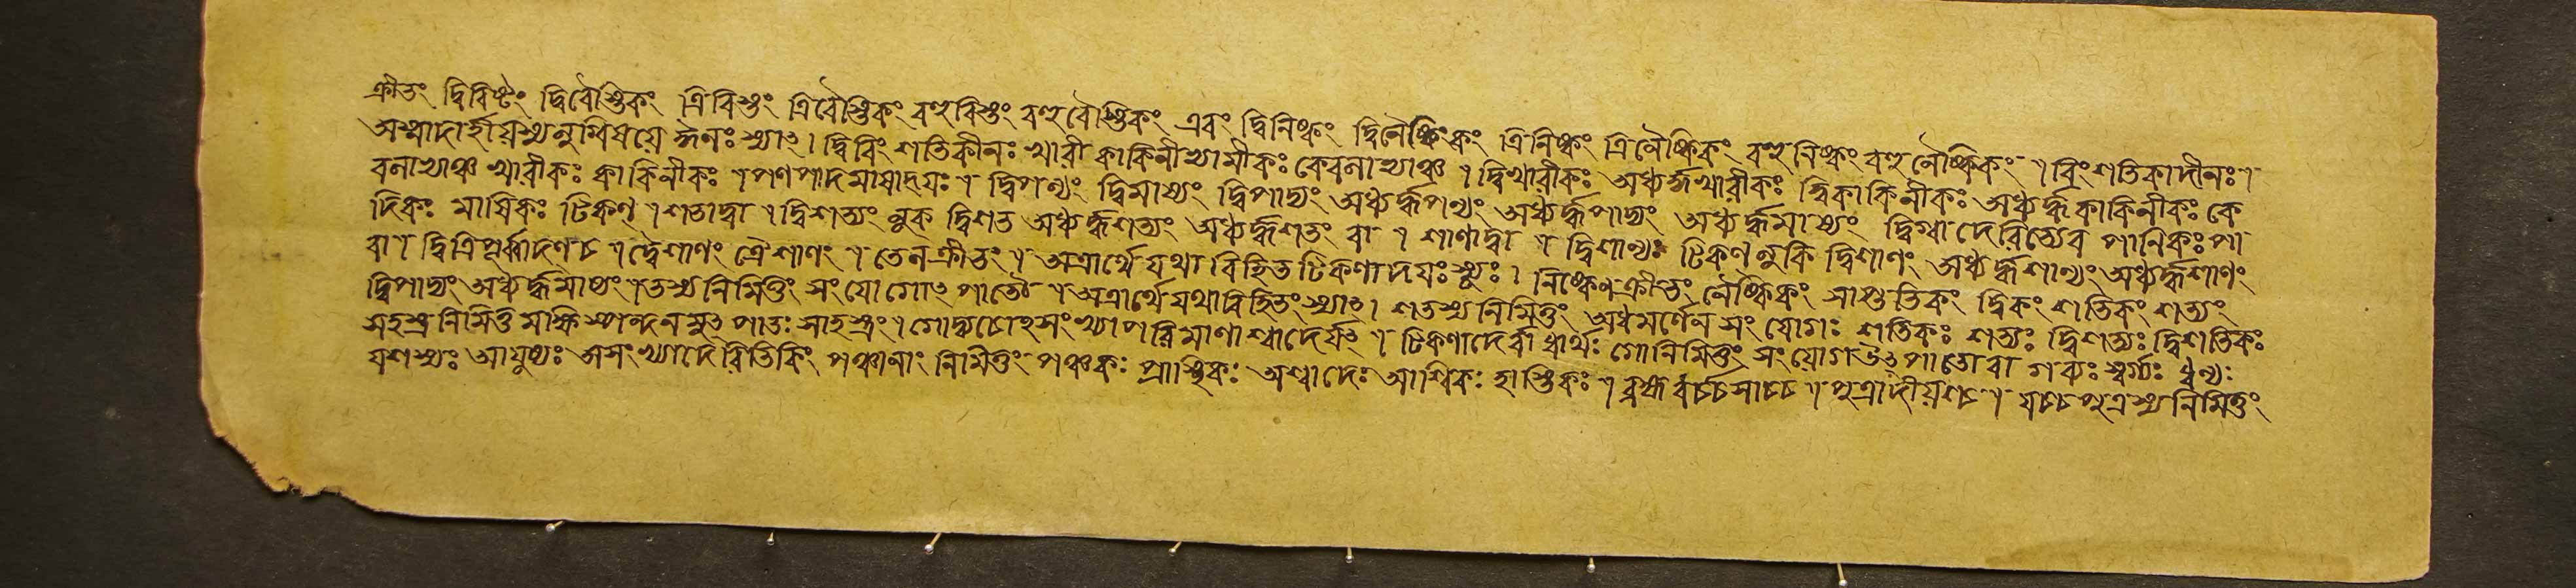 ক্রীতং দ্বিবিষ্টং দ্বিবৈস্তিকং ত্রিবিস্তং ত্রিবৈস্তিকং বহুবিস্তং বহুবৈস্তিকং এবং দ্বিনিষ্কং দ্বিনৈষ্কিকং ত্রিনিষ্কং ত্রিনৈষ্কিকং বহুনিষ্কং বহুনৈষ্কিকং । বিংশতিকাদীনঃ ।
অস্মাদার্হীয়স্থনুমিষয়ে নঃ স্যাৎ । দ্বিবিংশতিকীনঃ খারী কাকিনীভ্যামীকঃ কেবলাভ্যাঞ্চ । দ্বিখারীকঃ অধ্যর্দ্ধখারীকঃ দ্বিকাকিনীকঃ অধ্যর্দ্ধকাকিনীকঃ কে
বলাভ্যাঞ্চ খারীকঃ কাকিনীকঃ । পণপাদমাষাদ্যঃ । দ্বিপণ্যং দ্বিমাষ্যং দ্বিপাদ্যং অধ্যর্দ্ধপণ্যং অধ্যর্দ্ধপাদ্যং অধ্যর্দ্ধমাষ্যং দ্বিত্র্যাদেরিত্যেব পাণিকঃ পা
দিকঃ মাষিকঃ টিকণ্ । শতাদ্বা । দ্বিশত্যং লুক দ্বিশত অধ্যর্দ্ধশত্যং অধ্যর্দ্ধশতং বা । শাণাদ্বা । দ্বিশাণ্যং টিকণ্লুকি দ্বিশাণং অধ্যর্দ্ধশাণ্যং অধ্যর্দ্ধশাণং
বা । দ্বিত্রিপূর্ব্বাদণ চ । দ্বৈশাণং ত্রৈশাণং । তেন ক্রীতং । অত্রার্থে যথাবিহিতটিকণাদয়ঃ স্যুঃ । নিষ্কেণ ক্রীতং নৈষ্কিকং সাপ্ততিকং দ্বিকং শতিকং শত্যং
দ্বিপাদ্যং অধ্যর্দ্ধমাষ্যং । তস্য নিমিত্তং সংযোগোৎপাতৌ । অত্রার্থে যথাবিহিতং স্যাৎ । শতস্য নিমিত্তং অধমর্ণেন সংযোগঃ শতিকঃ শত্যঃ দ্বিশত্যঃ দ্বিশতিকঃ
সহস্রনিমিত্তমাক্ষিস্পন্দনমুৎপাতঃ সাহস্রং । গোদ্ব্যচোঽসংখ্যাপরিমাণাশ্বাদের্যৎ । টিকণাদের্বাধার্থঃ গোনিমিত্তং সংযোগ উৎপাতো বা গব্যঃ স্বর্গ্যঃ ধন্যঃ
যশস্যঃ আয়ুষ্যঃ অসংখ্যাদেরিতিকিং পঞ্চানাং নিমিত্তং পঞ্চকঃ প্রাস্থিকঃ অশ্বাদেঃ আশ্বিকঃ হাস্তিকঃ । ব্রহ্মবর্চ্চসাচ্চ । পুত্রাদীয়শ্চ । যচ্চ পুত্রস্য নিমিত্তং